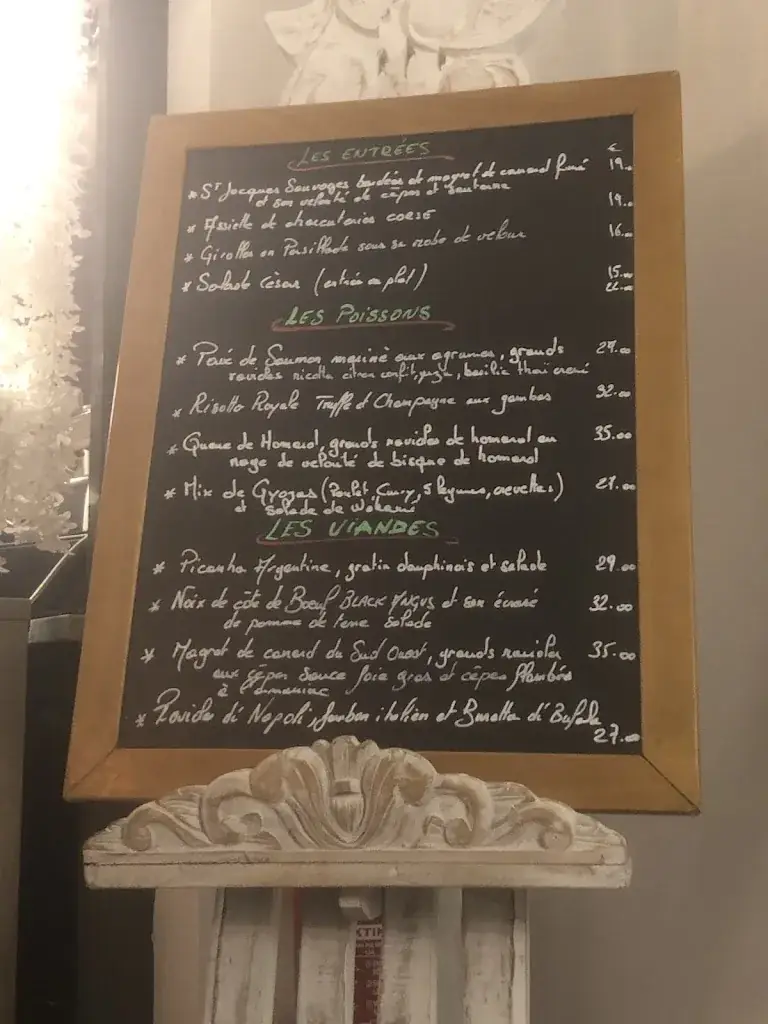 LES ENTRÉES €
* St Jacques Sauvages bardées de magret de canard fumé 19.00
et son velouté de cèpes et sauterne
* Assiette de charcuteries CORSE 19.00
* Girolles en Persillade sous sa robe de velour 16.00
* Salade César (entrée ou plat) 15.00
LES POISSONS
* Pavé de Saumon mariné aux agrumes, grands 27.00
ravioles ricotta citron confit, yuzu, basilic thaï
* Risotto Royale Truffe et Champagne aux gambas 32.00
* Queue de Homard, grands ravioles de homard en 35.00
nage de velouté de bisque de homard
* Mix de Gyozas (Poulet, Curry, 5 légumes, crevettes) 27.00
et salade de Wakamé
LES VIANDES
* Picanha Argentine, gratin dauphinois et salade 29.00
* Noix de côte de Boeuf BLACK ANGUS et son écrasé 32.00
de pomme de terre Salade
* Magret de canard du Sud Ouest, grands ravioles 35.00
aux cèpes Sauce foie gras et cèpes flambés
à l'armagnac
* Ravioles di Napoli, Jambon italien et Buratta di Bufala
27.00